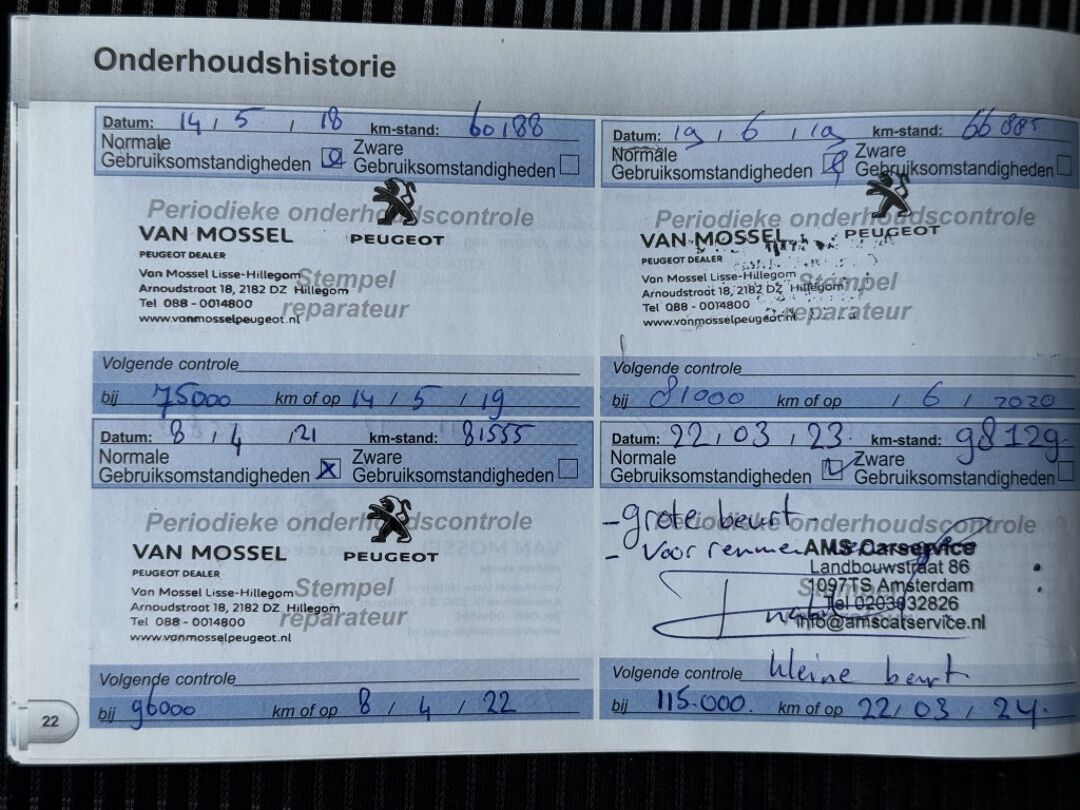 Onderhoudshistorie
Datum: 14 / 5 / 18 km-stand: 60188
Normale
Gebruiksomstandigheden
Zware
Gebruiksomstandigheden
Periodieke onderhoudscontrole
VAN MOSSEL
PEUGEOT
PEUGEOT DEALER
Van Mossel Lisse-Hillegom
Arnoudstraat 18, 2182 DZ Hillegom
Tel 088 - 0014800
www.vanmosselpeugeot.nl
Stempel
reparateur
Volgende controle
bij 75000 km of op 14 / 5 / 19
Datum: 19 / 6 / 19 km-stand: 66885
Normale
Gebruiksomstandigheden
Zware
Gebruiksomstandigheden
Periodieke onderhoudscontrole
VAN MOSSEL
PEUGEOT
PEUGEOT DEALER
Van Mossel Lisse-Hillegom
Arnoudstraat 18, 2182 DZ Hillegom
Tel 088 - 0014800
www.vanmosselpeugeot.nl
Stempel
reparateur
Volgende controle
bij 81000 km of op / 6 / 2020
Datum: 8 / 4 / 21 km-stand: 81555
Normale
Gebruiksomstandigheden x
Zware
Gebruiksomstandigheden
Periodieke onderhoudscontrole
VAN MOSSEL
PEUGEOT
PEUGEOT DEALER
Van Mossel Lisse-Hillegom
Arnoudstraat 18, 2182 DZ Hillegom
Tel 088 - 0014800
www.vanmosselpeugeot.nl
Stempel
reparateur
Volgende controle
bij 96000 km of op 8 / 4 / 22
Datum: 22 / 03 / 23 km-stand: 98129
Normale
Gebruiksomstandigheden
Zware
Gebruiksomstandigheden
Periodieke onderhoudscontrole
- grote beurt
- voor remmen
AMS Carservice
Landbouwstraat 86
1097TS Amsterdam
Tel 0203632826
info@amscarservice.nl
Stempel
Volgende controle kleine beurt
bij 115.000. km of op 22 / 03 / 24.
22